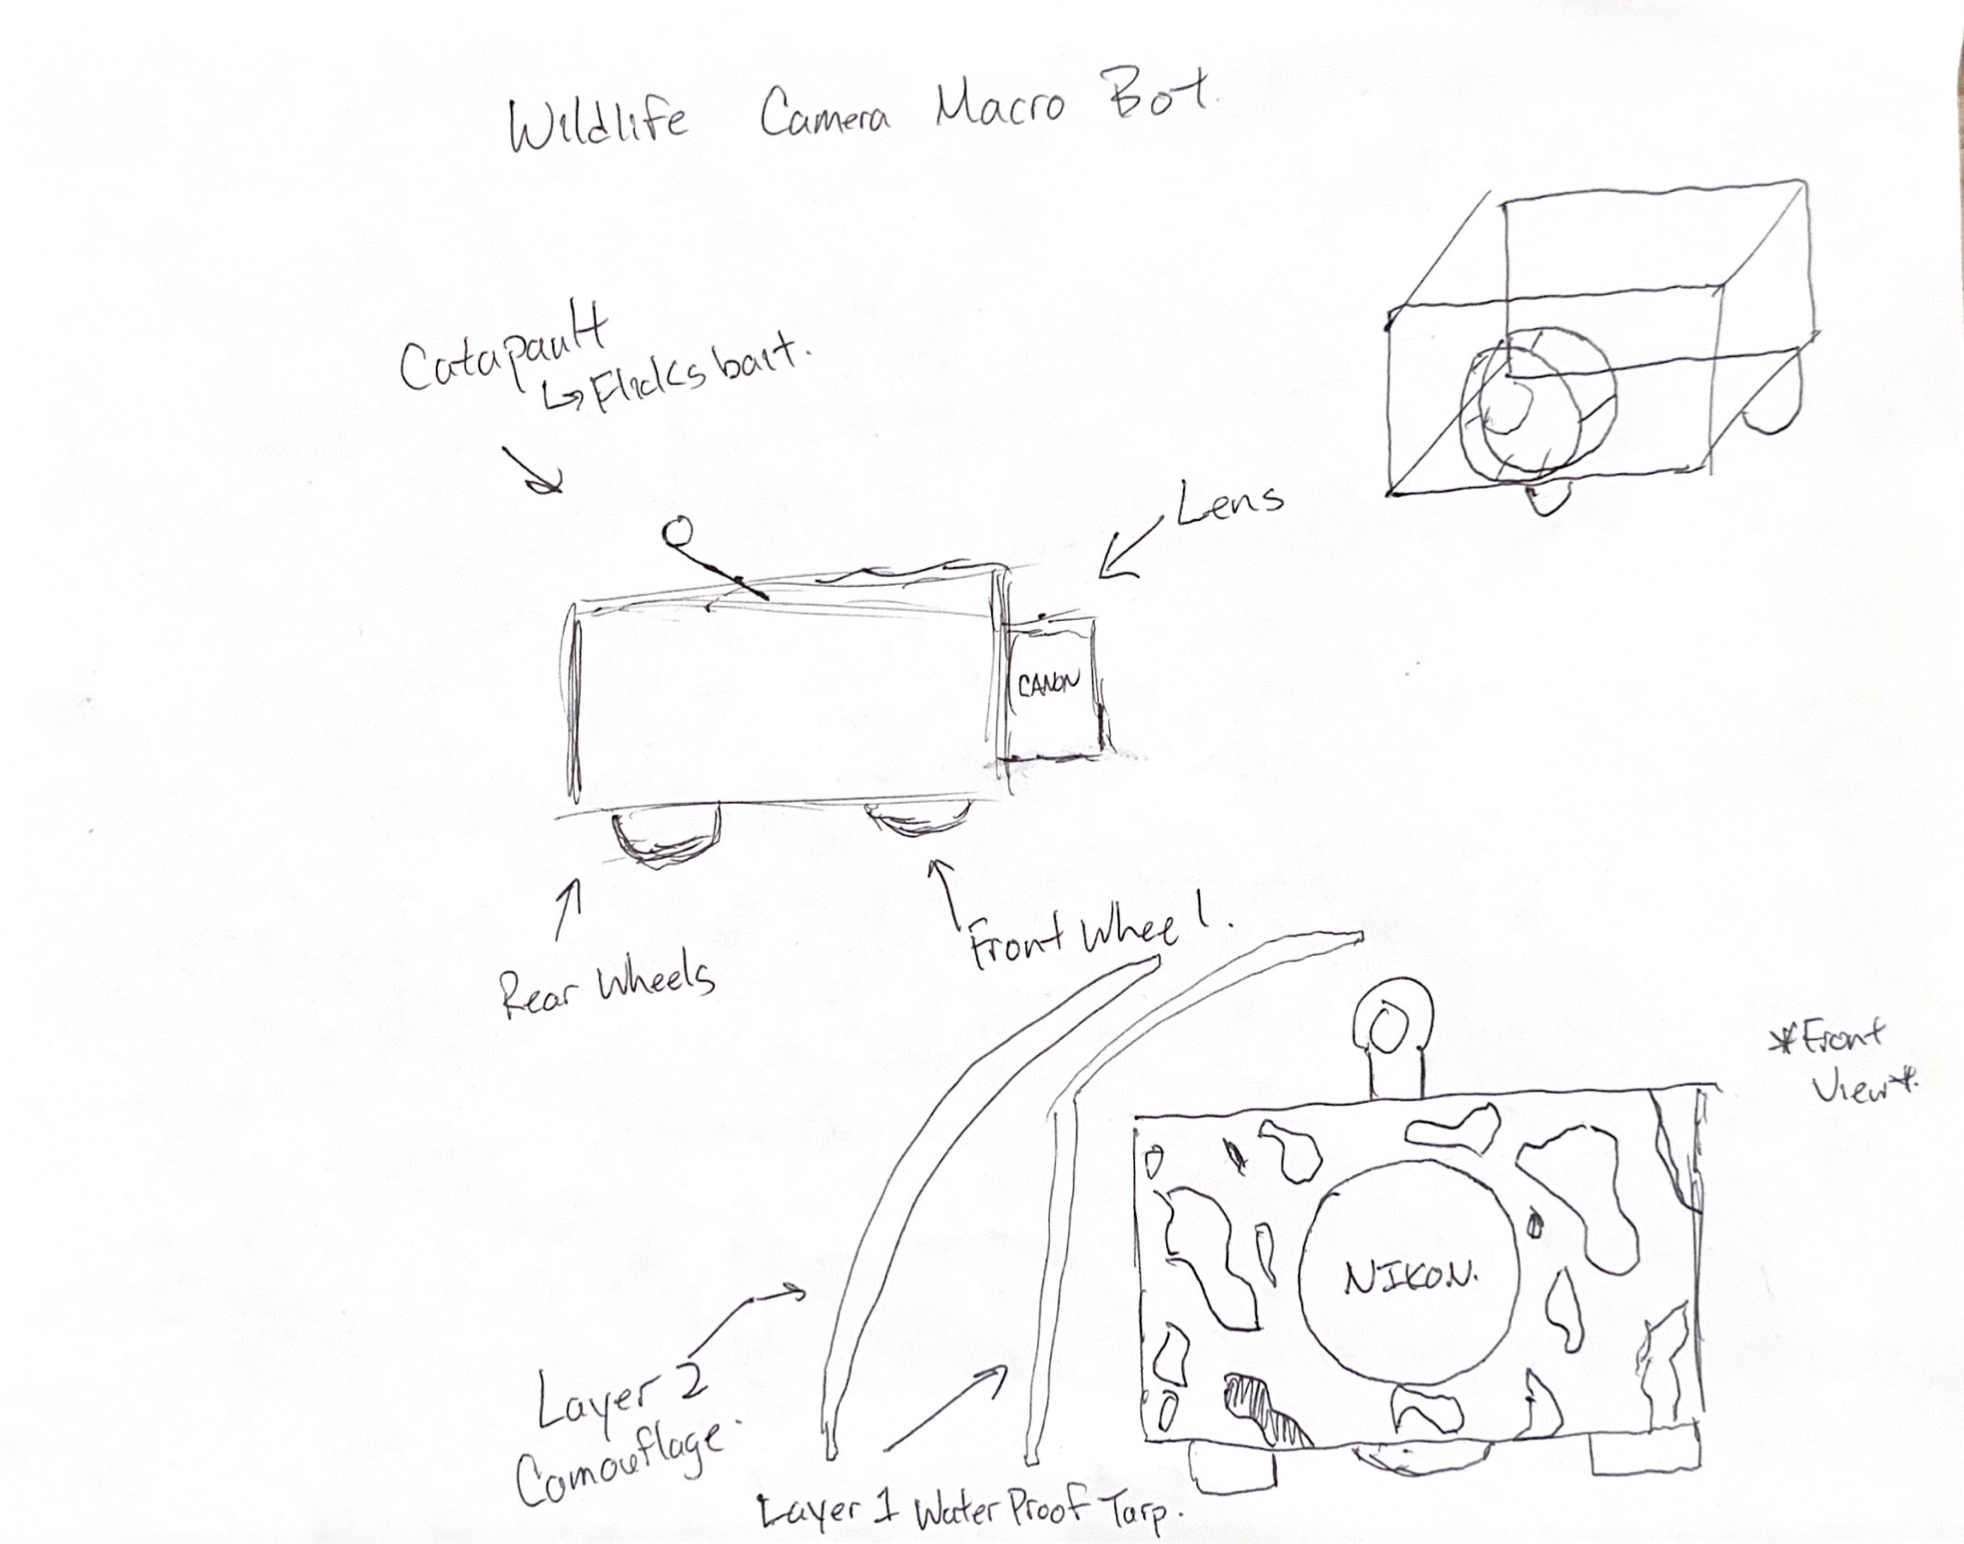 Wildlife Camera Macro Bot.
Catapault
↳ Flicks bait.
Lens
CANON
Front Wheel.
Rear Wheels
*Front
View*.
NIKON.
Layer 2
Camouflage.
Layer 1 Water Proof Tarp.